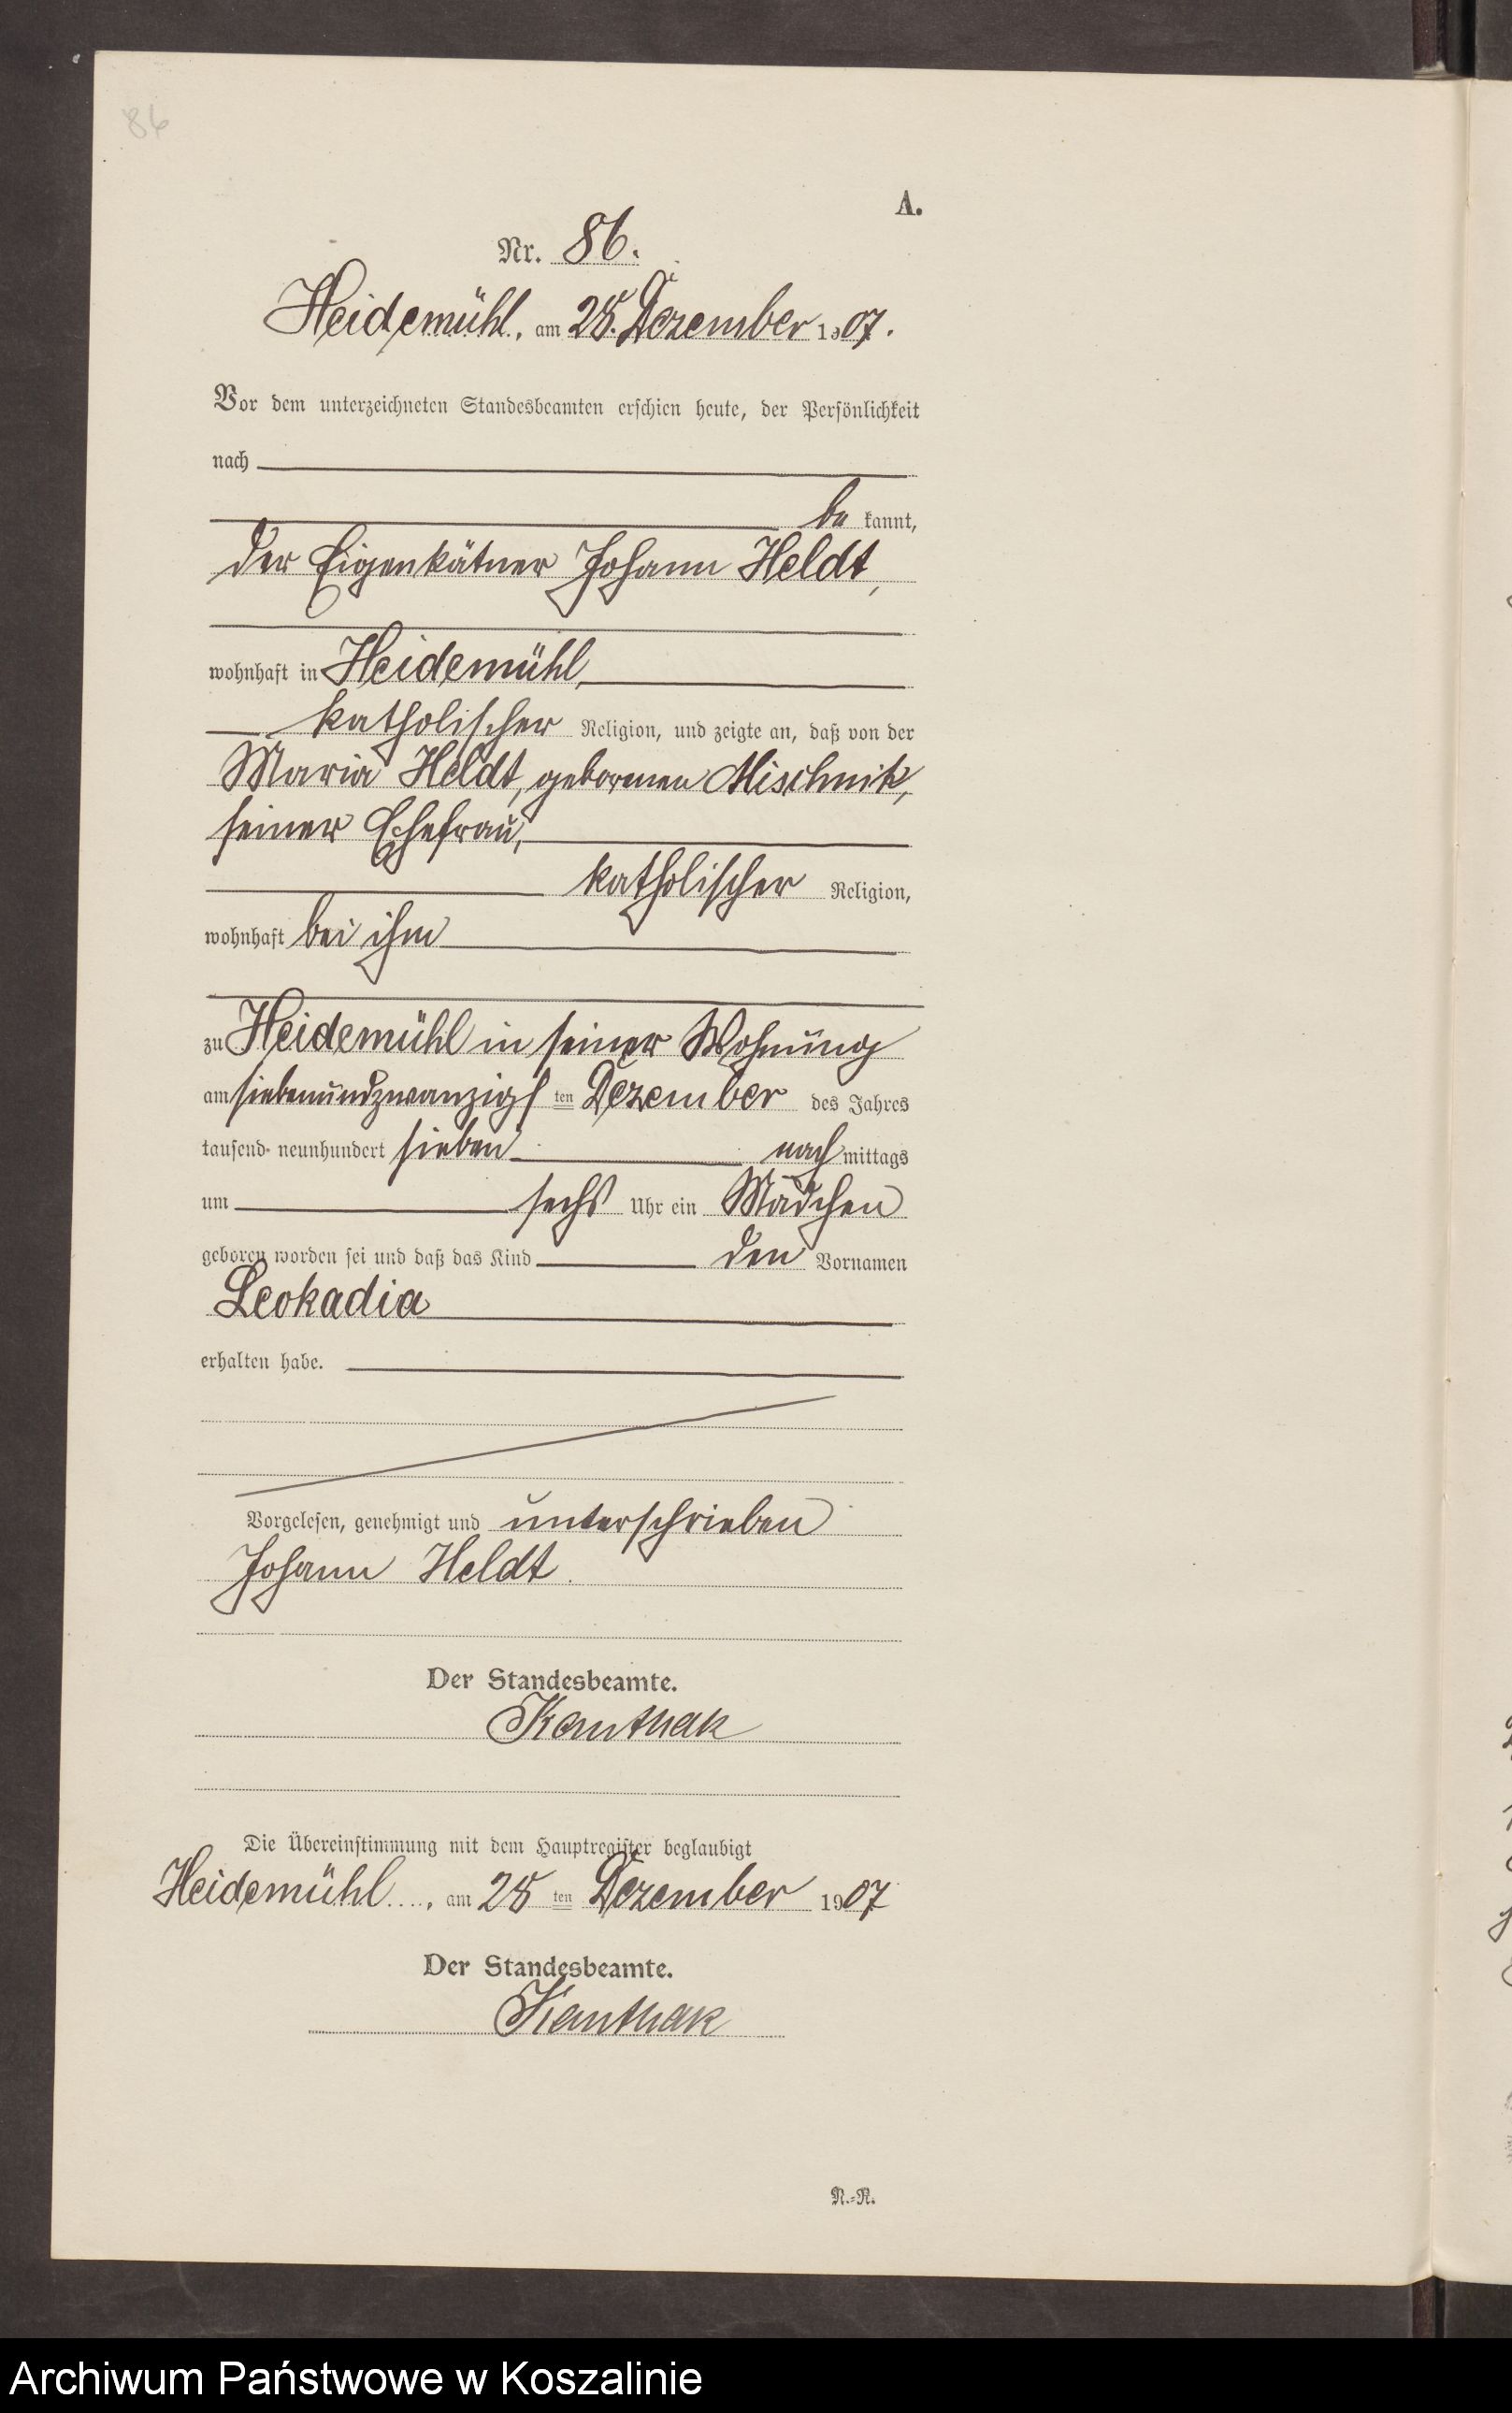 86
A.
Nr. 86.
Heidemühl, am 28. Dezember 1907.
Vor dem unterzeichneten Standesbeamten erschien heute, der Persönlichkeit
nach
be kannt,
der Eigenkätner Johann Heldt,
wohnhaft in Heidemühl,
katholischer Religion, und zeigte an, daß von der
Maria Heldt, geborenen Mischnik,
seiner Ehefrau,
katholischer Religion,
wohnhaft bei ihm
zu Heidemühl in seiner Wohnung
am siebenundzwanzigs ten Dezember des Jahres
tausend neunhundert sieben nach mittags
um sechs Uhr ein Mädchen
geboren worden sei und daß das Kind den Vornamen
Leokadia
erhalten habe.
Vorgelesen, genehmigt und unterschrieben
Johann Heldt.
Der Standesbeamte.
Kanthak
Die Übereinstimmung mit dem Hauptregister beglaubigt
Heidemühl, am 28 ten Dezember 1907
Der Standesbeamte.
Kanthak
N.-R.
Archiwum Państwowe w Koszalinie